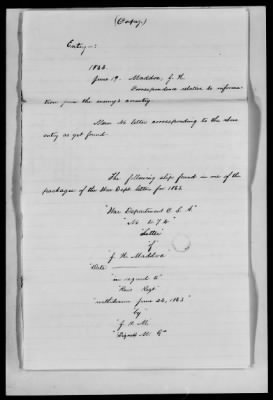 (Copy.)
Entry—:
1863.
June 19. Maddox, J. H.
Correspondence relative to informa-
tion from the enemy's country
Mem: No letter corresponding to the above
entry as yet found.
The following slip found in one of the
packages of the War Dept. letters for 1863.
"War Department C. S. A."
"No. 274"
"Letter"
"of"
"J. H. Maddox
"Date
"in regard to"
"withdrawn June 22, 1863"
"by"
"J. H. M."
"Signed